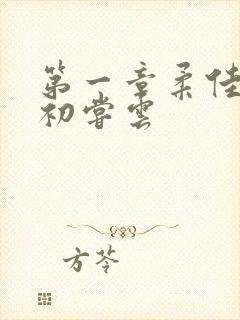 第一章柔佳
初尝雲
方苓